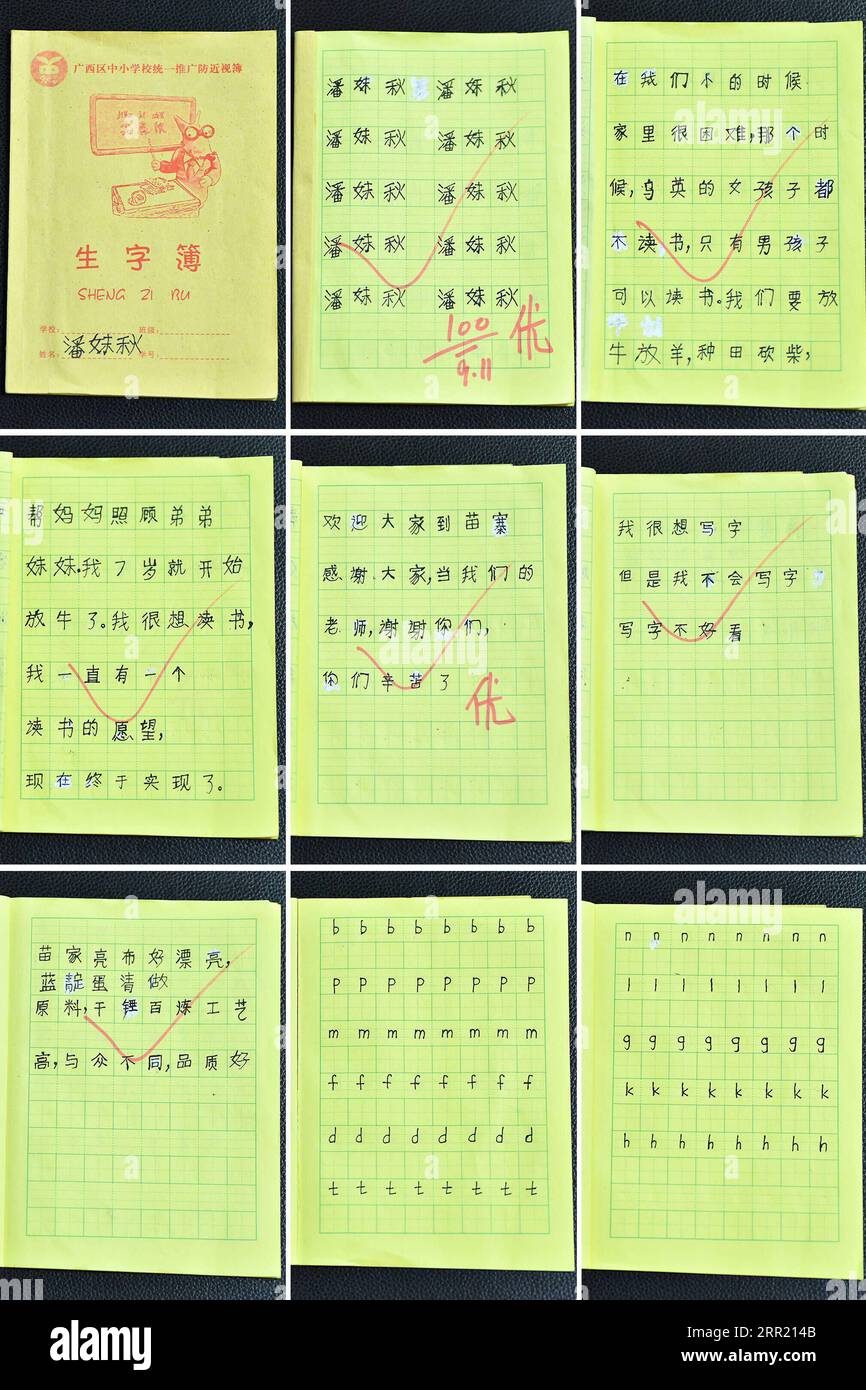 广西区中小学校统一推广防近视簿
生字簿
SHENG ZI BU
学校: 班级:
姓名: 潘妹秋 学号:
潘妹秋 潘妹秋
潘妹秋 潘妹秋
潘妹秋 潘妹秋
潘妹秋 潘妹秋
潘妹秋 潘妹秋
100 优
9.11
在我们小的时候
家里很困难,那个时
候,乌英的女孩子都
不读书,只有男孩子
可以读书。我们要放
牛放羊,种田砍柴,
帮妈妈照顾弟弟
妹妹.我7岁就开始
放牛了。我很想读书,
我一直有一个
读书的愿望,
现在终于实现了。
欢迎大家到苗寨
感谢大家,当我们的
老师,谢谢你们,
你们辛苦了
优
我很想写字
但是我不会写字
写字不好看
苗家亮布好漂亮,
蓝靛蛋清做
原料,千锤百炼工艺
高,与众不同,品质好
b b b b b b b b
p p p p p p p p
m m m m m m m m
f f f f f f f f
d d d d d d d d
t t t t t t t t
n n n n n n n n
l l l l l l l l
g g g g g g g g
k k k k k k k k
h h h h h h h h
alamy
Image ID: 2RR214B
www.alamy.com